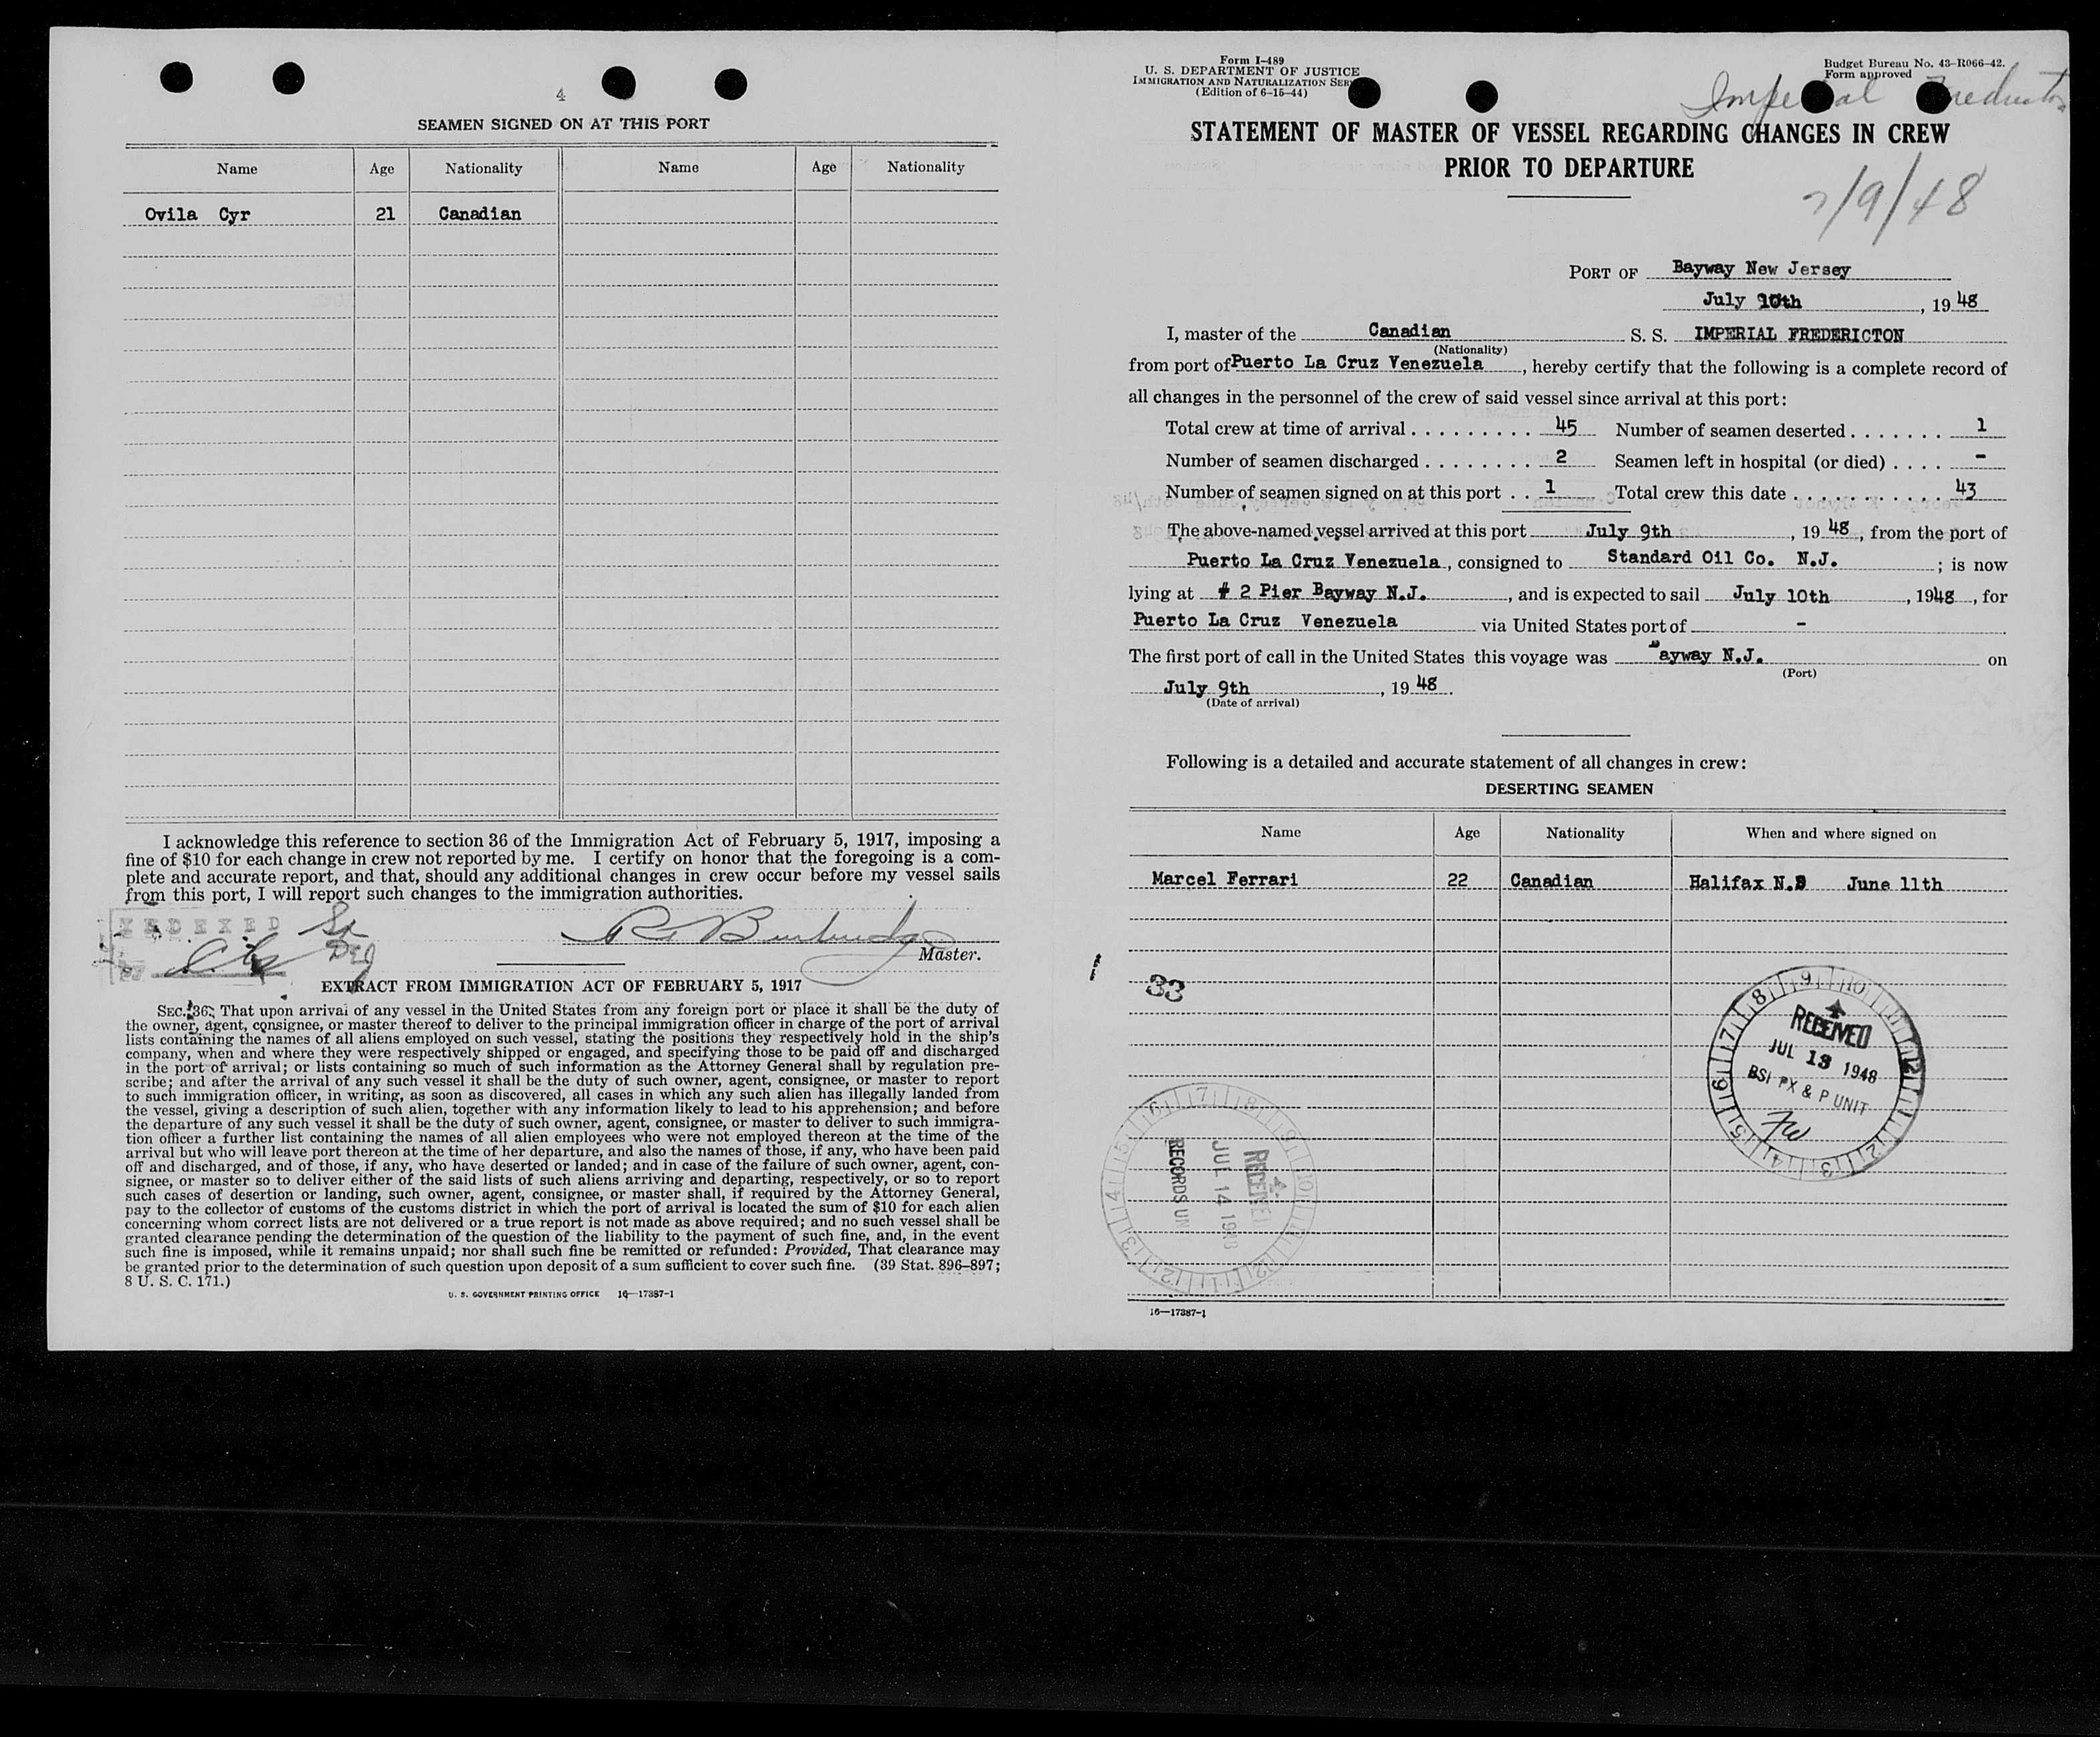 4
SEAMEN SIGNED ON AT THIS PORT
Name Age Nationality Name Age Nationality
Ovila Cyr 21 Canadian
I acknowledge this reference to section 36 of the Immigration Act of February 5, 1917, imposing a
fine of $10 for each change in crew not reported by me. I certify on honor that the foregoing is a com-
plete and accurate report, and that, should any additional changes in crew occur before my vessel sails
from this port, I will report such changes to the immigration authorities.
INDEXED
Master.
EXTRACT FROM IMMIGRATION ACT OF FEBRUARY 5, 1917
SEC. 36. That upon arrival of any vessel in the United States from any foreign port or place it shall be the duty of
the owner, agent, consignee, or master thereof to deliver to the principal immigration officer in charge of the port of arrival
lists containing the names of all aliens employed on such vessel, stating the positions they respectively hold in the ship's
company, when and where they were respectively shipped or engaged, and specifying those to be paid off and discharged
in the port of arrival; or lists containing so much of such information as the Attorney General shall by regulation pre-
scribe; and after the arrival of any such vessel it shall be the duty of such owner, agent, consignee, or master to report
to such immigration officer, in writing, as soon as discovered, all cases in which any such alien has illegally landed from
the vessel, giving a description of such alien, together with any information likely to lead to his apprehension; and before
the departure of any such vessel it shall be the duty of such owner, agent, consignee, or master to deliver to such immigra-
tion officer a further list containing the names of all alien employees who were not employed thereon at the time of the
arrival but who will leave port thereon at the time of her departure, and also the names of those, if any, who have been paid
off and discharged, and of those, if any, who have deserted or landed; and in case of the failure of such owner, agent, con-
signee, or master so to deliver either of the said lists of such aliens arriving and departing, respectively, or so to report
such cases of desertion or landing, such owner, agent, consignee, or master shall, if required by the Attorney General,
pay to the collector of customs of the customs district in which the port of arrival is located the sum of $10 for each alien
concerning whom correct lists are not delivered or a true report is not made as above required; and no such vessel shall be
granted clearance pending the determination of the question of the liability to the payment of such fine, and, in the event
such fine is imposed, while it remains unpaid; nor shall such fine be remitted or refunded: Provided, That clearance may
be granted prior to the determination of such question upon deposit of a sum sufficient to cover such fine. (39 Stat. 896-897;
8 U. S. C. 171.)
U. S. GOVERNMENT PRINTING OFFICE 16—17387-1
Form I-489
U. S. DEPARTMENT OF JUSTICE
IMMIGRATION AND NATURALIZATION SER
(Edition of 6-15-44)
Budget Bureau No. 43-R066-42.
Form approved
STATEMENT OF MASTER OF VESSEL REGARDING CHANGES IN CREW
PRIOR TO DEPARTURE
7/9/48
PORT OF Bayway New Jersey
July 10th, 1948
I, master of the Canadian S. S. IMPERIAL FREDERICTON
(Nationality)
from port of Puerto La Cruz Venezuela, hereby certify that the following is a complete record of
all changes in the personnel of the crew of said vessel since arrival at this port:
Total crew at time of arrival 45 Number of seamen deserted 1
Number of seamen discharged 2 Seamen left in hospital (or died) -
Number of seamen signed on at this port 1 Total crew this date 43
The above-named vessel arrived at this port July 9th, 1948, from the port of
Puerto La Cruz Venezuela, consigned to Standard Oil Co. N.J.; is now
lying at # 2 Pier Bayway N.J., and is expected to sail July 10th, 1948, for
Puerto La Cruz Venezuela via United States port of -
The first port of call in the United States this voyage was Bayway N.J. on
(Port)
July 9th, 1948.
(Date of arrival)
Following is a detailed and accurate statement of all changes in crew:
DESERTING SEAMEN
Name Age Nationality When and where signed on
Marcel Ferrari 22 Canadian Halifax N.S June 11th
33
RECEIVED
JUL 13 1948
BSI PX & P UNIT
RECEIVED
JUL 14 1948
RECORDS UN
16—17387-1